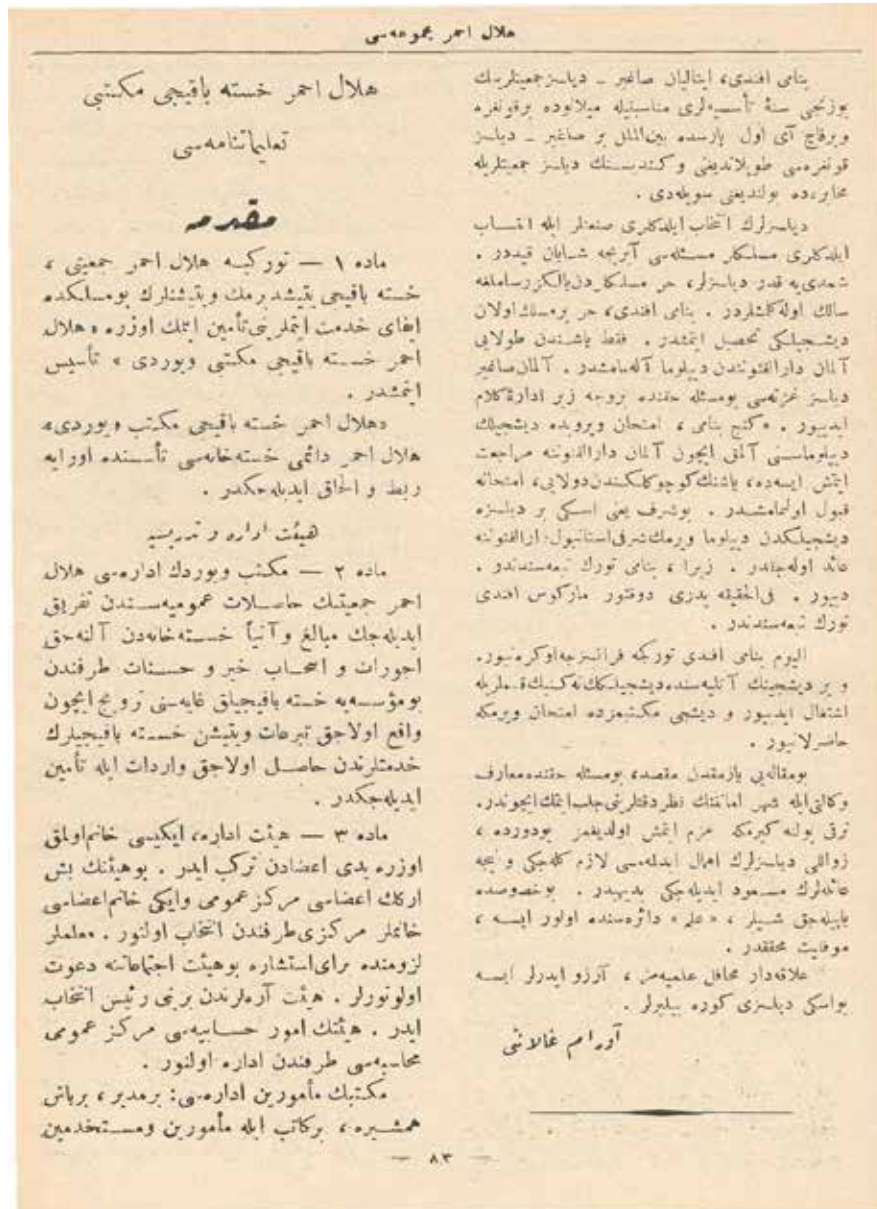 هلال احمر مجموعه‌سی
بنامی افندی، ایتالیان صاغیر ــ دیلسز جمعیتلرینك
یوزنجی سنهٔ تأسیسلری مناسبتیله میلانوده برقونغره
وبرقاچ آی اول پارسده بین‌الملل بر صاغیر ــ دیلسز
قونغره‌سی طوپلاندیغنی وكندیسنك دیلسز جمعیتلریله
مخابره‌ده بولندیغنی سویله‌دی .
دیلسزلرك انتخاب ایلدكلری صنعتلر ایله انتساب
ایلدكلری مسلكلر مسئله‌سی آیریجه شایان قیددر .
شمدی‌یه قدر دیلسزلر، حر مسلكلردن یالكز رساملغه
سالك اوله‌كلمشلردر . بنامی افندی، حر برمسلك اولان
دیشجیلكی تحصیل ایتمشدر . فقط یاشندن طولایی
آلمان دارالفنونندن دیپلوما آله‌مامشدر . آلمان صاغیر
دیلسز غزته‌سی بومسئله حقنده بروجه زیر ادارهٔ كلام
ایدییور . «كنج بنامی ، امتحان ویروبده دیشجیلك
دیپلوماسنی آلمق ایچون آلمان دارالفنوننه مراجعت
ایتمش ایسه‌ده، یاشنك كوچوكلكندن دولایی، امتحانه
قبول اولنمامشدر . بوشرف یعنی اسكی بر دیلسزه
دیشجیلكدن دیپلوما ویرمك شرفی استانبول دارالفنوننه
عائد اوله‌جقدر . زیرا ، بنامی تورك تبعه‌سندندر .
دییور . فی‌الحقیقه پدری دوقتور ماركوس افندی
تورك تبعه‌سندندر .
الیوم بنامی افندی توركجه فرانسزجه اوكره‌نیور.
و بر دیشجینك آتلیه‌سنده دیشجیلكك تكنیك قسملریله
اشتغال ایدییور و دیشجی مكتبمزده امتحان ویرمكه
حاضرلانیور .
بومقاله‌یی یازمقدن مقصد، بومسئله حقنده معارف
وكالتی ایله شهر امانتنك نظر دقتلرینی جلب ایتمك ایچوندر.
ترقی یولنه كیرمكه عزم ایتمش اولدیغمز بودورده ،
زواللی دیلسزلرك اهمال ایدلمه‌مسی لازم كله‌جكی و نیجه
عائله‌لرك مسعود ایدیله‌جكی بدیهیدر . بوخصوصده
یاپیله‌جق شیلر ، «علم» دائره‌سنده اولور ایسه ،
موفقیت محققدر .
علاقه‌دار محافل علمیه‌مز ، آرزو ایدرلر ایسه
بواسكی دیلسزی كوره بیلیرلر .
آورام غالانتی
هلال احمر خسته باقیجی مكتبی
تعلیماتنامه‌سی
مقدمه
ماده ۱ — توركیه هلال احمر جمعیتی ،
خسته باقیجی یتیشدیرمك ویتیشنلرك بومسلكده
ایفای خدمت ایتملرینی تأمین ایتمك اوزره «هلال
احمر خسته باقیجی مكتبی ویوردی » تأسیس
ایتمشدر .
«هلال احمر خسته باقیجی مكتب ویوردی»
هلال احمر دائمی خسته‌خانه‌سی تأسسنده اورایه
ربط و الحاق ایدیله‌جكدر .
هیئت اداره و تدریسیه
ماده ۲ — مكتب ویوردك اداره‌سی هلال
احمر جمعیتنك حاصلات عمومیه‌سندن تفریق
ایدیله‌جك مبالغ وآتیاً خسته‌خانه‌دن آلنه‌جق
اجورات و اصحاب خیر و حسنات طرفندن
بومؤسسه‌یه خسته باقیجیلق غایه‌سنی ترویج ایچون
واقع اولاجق تبرعات ویتیشن خسته باقیجیلرك
خدمتلرندن حاصل اولاجق واردات ایله تأمین
ایدیله‌جكدر .
ماده ۳ — هیئت اداره، ایكیسی خانم اولمق
اوزره یدی اعضادن تركب ایدر . بوهیئتك بش
اركك اعضاسی مركز عمومی وایكی خانم اعضاسی
خانملر مركزی طرفندن انتخاب اولنور . معلملر
لزومنده برای استشاره بوهیئت اجتماعاتنه دعوت
اولونورلر . هیئت آره‌لرندن برینی رئیس انتخاب
ایدر . هیئتك امور حسابیه‌سی مركز عمومی
محاسبه‌سی طرفندن اداره اولنور .
مكتبك مأمورین اداره‌سی: برمدیر ، برباش
همشیره ، بركاتب ایله مأمورین ومستخدمین
— ۸۳ —